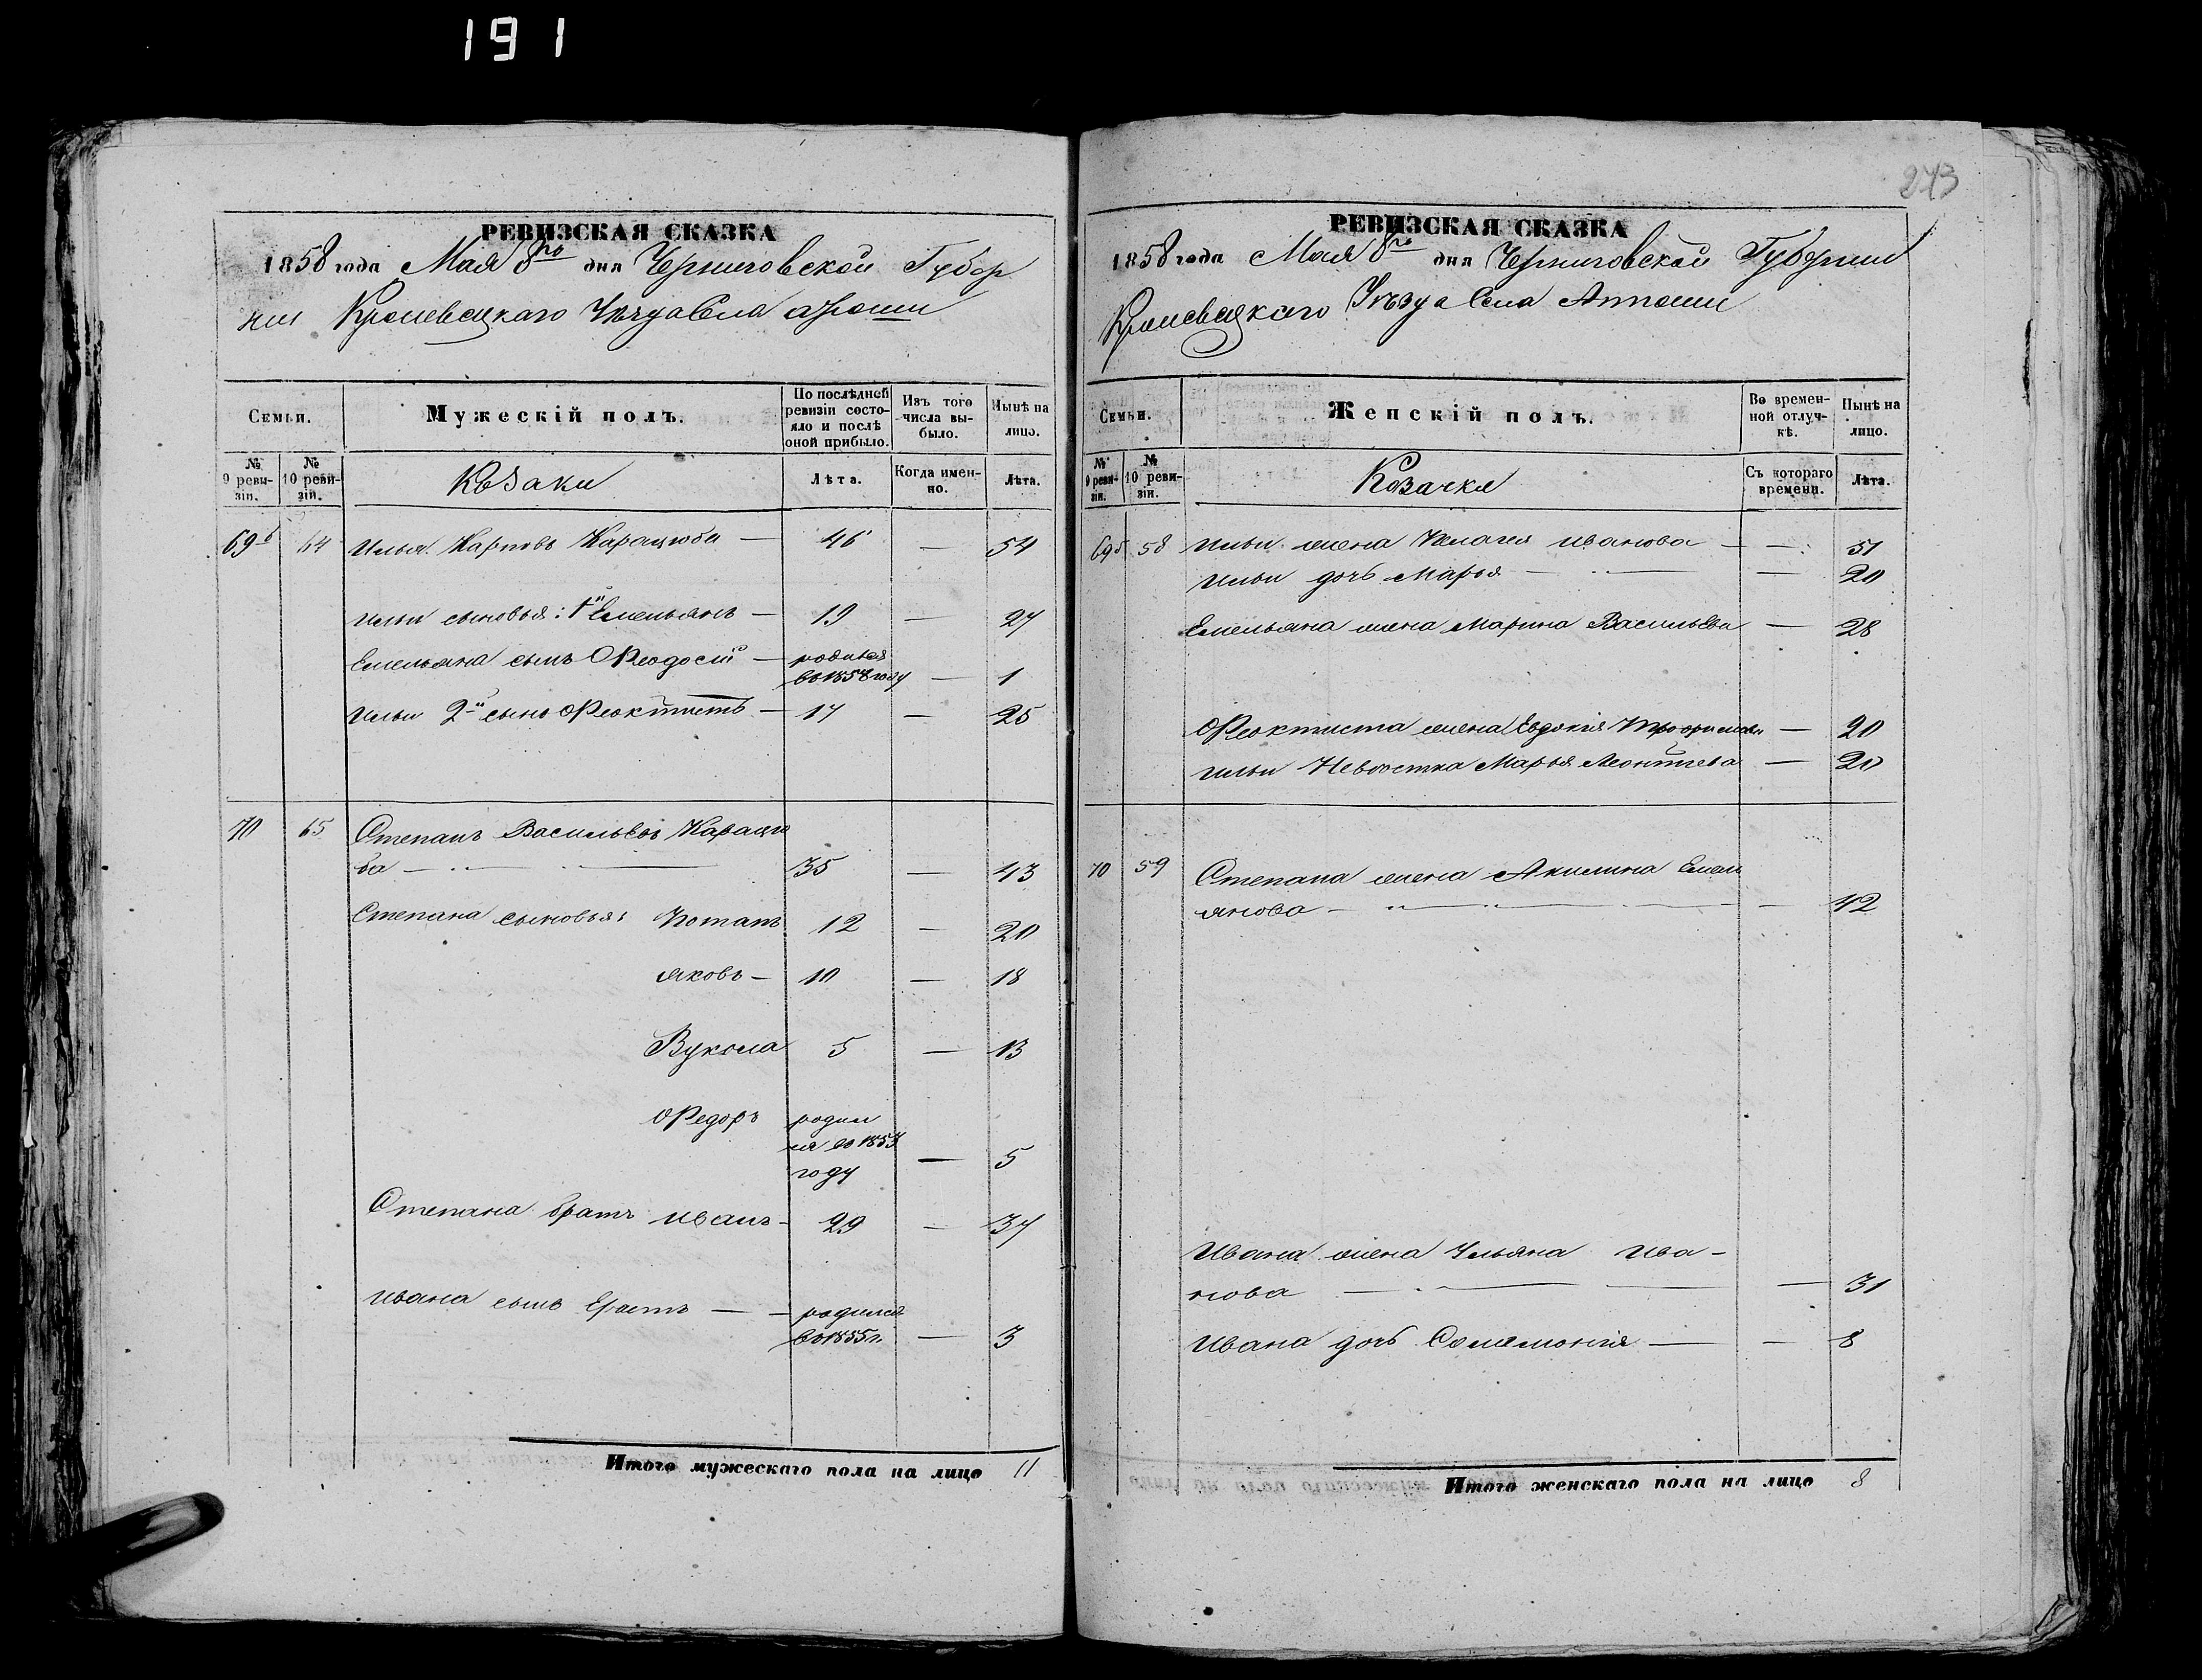 191
РЕВИЗСКАЯ СКАЗКА
1858 года Мая 8го дня Черниговской Губер
нии Кролевецкаго Уѣзда Села
Семьи.
Мужескій полъ.
По послѣдней ревизіи состояло и послѣ оной прибыло.
Изъ того числа выбыло.
Нынѣ на лицо.
№ 9 ревизіи.
№ 10 ревизіи.
Козаки
Лѣта.
Когда именно.
Лѣта.
69б 64 Илья Карповъ Карацюба — 46 — 54
Ильи сыновья: 1й Емельянъ — 19 — 27
Емельяна сынъ Ѳеодосій — родился
во 1858 году — 1
Ильи 2й сынъ Ѳеоктистъ — 17 — 25
70 65 Степанъ Васильевъ Карацю
ба — 35 — 43
Степана сыновья: Потапъ 12 — 20
Яковъ — 10 — 18
Вукола 5 — 13
Ѳедоръ родил
ся во 1853
году — 5
Степана братъ Иванъ — 29 — 37
Ивана сынъ Ерастъ — родился
во 1855 г. — 3
Итого мужескаго пола на лицо 11
273
РЕВИЗСКАЯ СКАЗКА
1858 года Мая 8го дня Черниговской Губерніи
Кролевецкаго Уѣзда Села
Семьи.
Женскій полъ.
Во временной отлучкѣ.
Нынѣ на лицо.
№ 9 ревизіи.
№ 10 ревизіи.
Козачки
Съ котораго времени.
Лѣта.
69б 58 Ильи жена Пелагея Иванова — — 51
Ильи дочь Марья — — 20
Емельяна жена Марина Васильева — 28
Ѳеоктиста жена Евдокія Трофимова — 20
Ильи Невѣстка Марья Леонтіева — 20
70 59 Степана жена Акилина Емель
янова — — 42
Ивана жена Ульяна Ива-
нова — — 31
Ивана дочь Соломонія — — 8
Итого женскаго пола на лицо 8